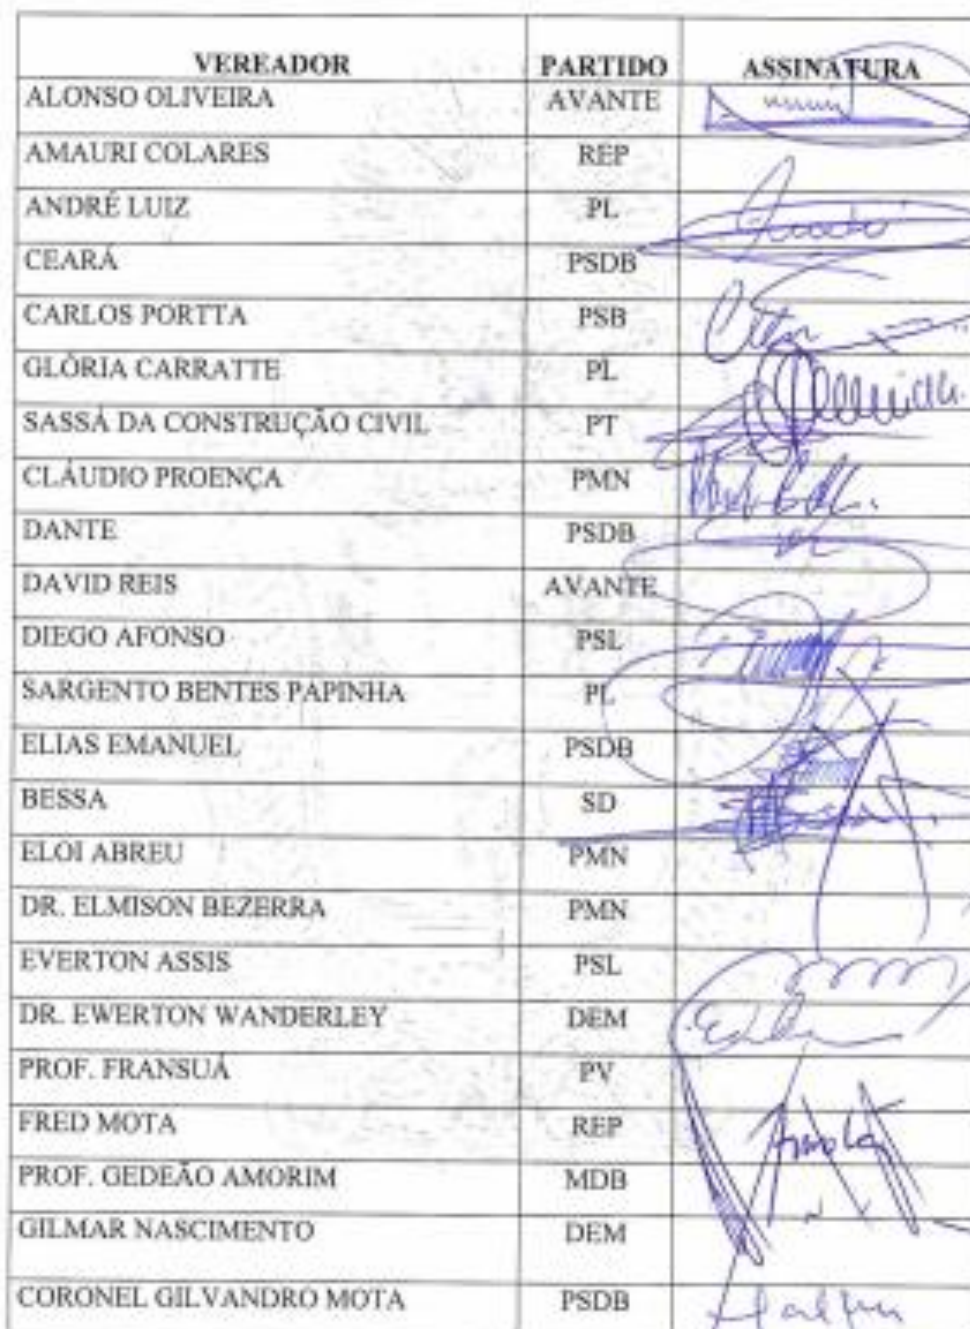 VEREADOR PARTIDO ASSINATURA
ALONSO OLIVEIRA AVANTE
AMAURI COLARES REP
ANDRÉ LUIZ PL
CEARÁ PSDB
CARLOS PORTTA PSB
GLÓRIA CARRATTE PL
SASSÁ DA CONSTRUÇÃO CIVIL PT
CLÁUDIO PROENÇA PMN
DANTE PSDB
DAVID REIS AVANTE
DIEGO AFONSO PSL
SARGENTO BENTES PAPINHA PL
ELIAS EMANUEL PSDB
BESSA SD
ELOI ABREU PMN
DR. ELMISON BEZERRA PMN
EVERTON ASSIS PSL
DR. EWERTON WANDERLEY DEM
PROF. FRANSUÁ PV
FRED MOTA REP
PROF. GEDEÃO AMORIM MDB
GILMAR NASCIMENTO DEM
CORONEL GILVANDRO MOTA PSDB